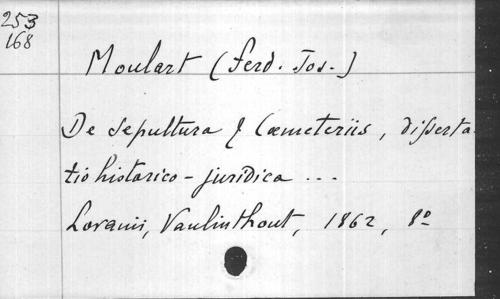 253
168
Moulart (Ferd. Jos.)
De sepultura & Cœmeteriis, disserta-
tio historico-juridica ...
Lovanii, Vanlinthout, 1862, 8º